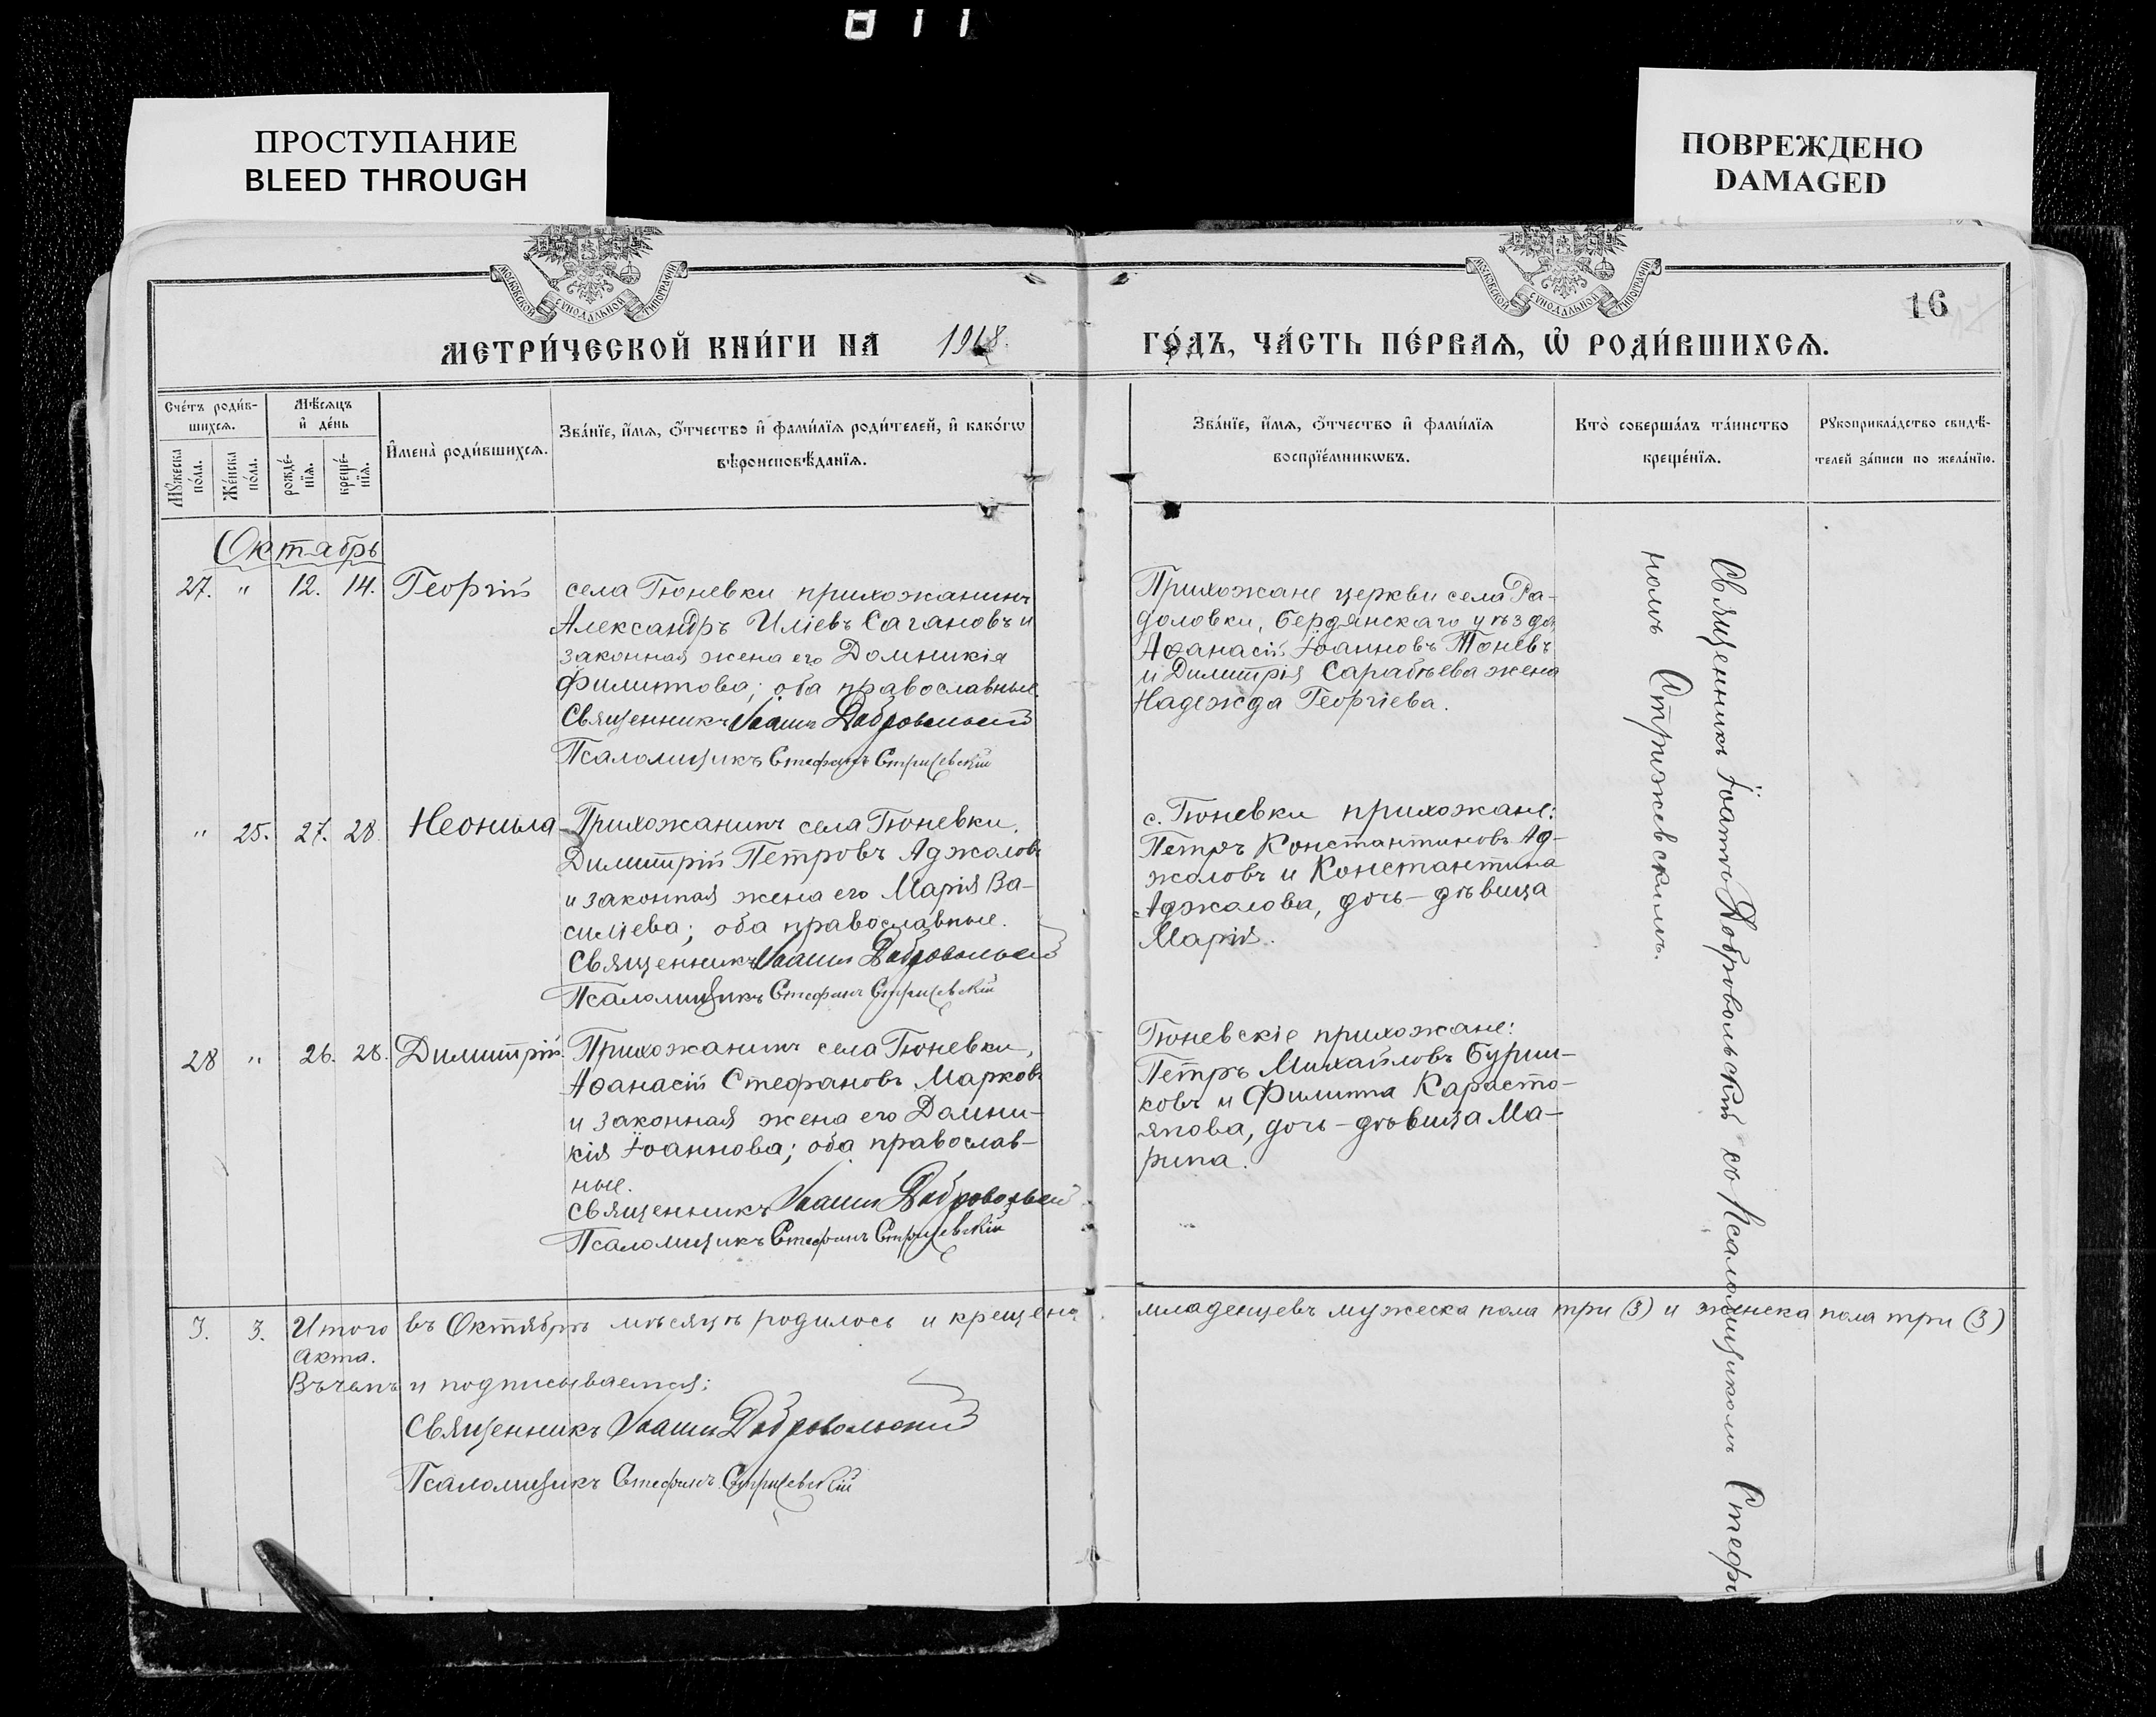 811
ПРОСТУПАНИЕ
BLEED THROUGH
ПОВРЕЖДЕНО
DAMAGED
МОСКОВСКОЙ СѴНОДАЛЬНОЙ ТИПОГРАФІИ
МОСКОВСКОЙ СѴНОДАЛЬНОЙ ТИПОГРАФІИ
16
МЕТРИ́ЧЕСКОЙ КНИ́ГИ НА 1918
ГО́ДЪ, ЧА́СТЬ ПЕ́РВАѦ, Ѡ҆ РОДИ́ВШИХСѦ.
Сче́тъ роди́в-
шихсѧ.
Мꙋ́жеска по́ла.
Же́нска по́ла.
Мѣ́сѧцъ
и҆ де́нь
рожде́-
нїѧ.
креще́-
нїѧ.
И҆мена̀ роди́вшихсѧ.
Зва́нїе, и҆́мѧ, ѻ҆́тчество и҆ фами́лїѧ роди́телей, и҆ како́гѡ
вѣроисповѣ́данїѧ.
Зва́нїе, и҆́мѧ, ѻ҆́тчество и҆ фами́лїѧ
воспрїе́мникѡвъ.
Кто̀ соверша́лъ та́инство
креще́нїѧ.
Рꙋкоприкла́дство свидѣ́-
телей за́писи по жела́нїю.
Октябрь
27. " 12. 14. Георгій
села Гюневки прихожанинъ
Александръ Иліевъ Сагановъ и
законная жена его Домникія
Филиппова; оба православные.
Священникъ Іоаннъ Добровольскій
Псаломщикъ Стефанъ Стрижевскій
Прихожане церкви села Ра-
доловки, Бердянскаго уѣзда,
Аѳанасій Іоанновъ Тоневъ
и Димитрія Сарабѣева жена
Надежда Георгіева.
" 25. 27. 28. Неонила
Прихожанинъ села Гюневки,
Димитрій Петровъ Аджаловъ
и законная жена его Марія Ва-
силіева; оба православные.
Священникъ Іоаннъ Добровольскій
Псаломщикъ Стефанъ Стрижевскій
с. Гюневки прихожане:
Петръ Константиновъ Ад-
жаловъ и Константина
Аджалова, дочь-дѣвица
Марія.
28 " 26. 28. Димитрій.
Прихожанинъ села Гюневки,
Аѳанасій Стефановъ Марковъ
и законная жена его Домни-
кія Іоаннова; оба православ-
ные.
Священникъ Іоаннъ Добровольскій
Псаломщикъ Стефанъ Стрижевскій
Гюневскіе прихожане:
Петръ Михайловъ Бурли-
ковъ и Филиппа Карасто-
янова, дочь-дѣвица Ма-
рина.
Священникъ Іоаннъ Добровольскій съ Псаломщикомъ Стефа
номъ Стрижевскимъ.
3. 3. Итого въ Октябрѣ мѣсяцѣ родилось и крещено младенцевъ мужеска пола три (3) и женска пола три (3)
акта.
и подписываемся:
Священникъ Іоаннъ Добровольскій
Псаломщикъ Стефанъ Стрижевскій